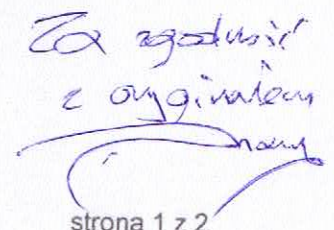 Za zgodność
z oryginałem
strona 1 z 2